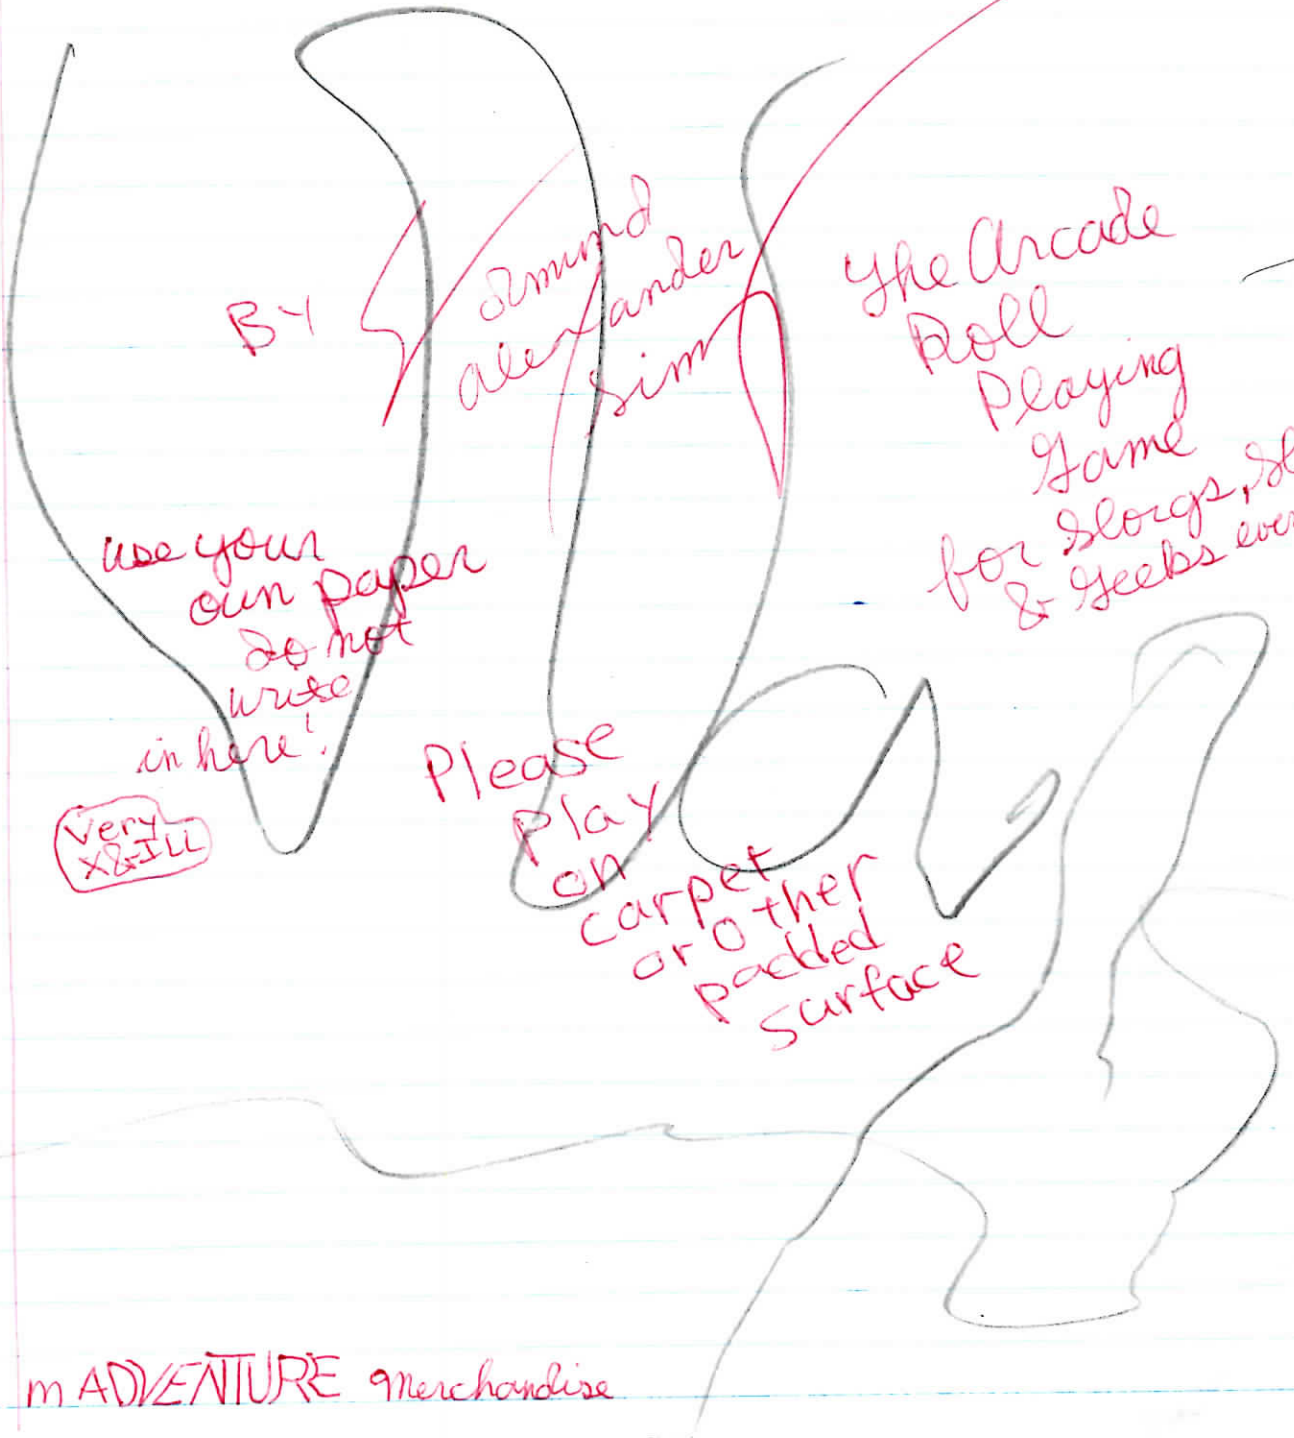 BY
Osmund
alexander
Sim
The Arcade
Roll
Playing
Game
for Slorgs,
& Geebs
use your
own paper
do not
write
in here!
Very
X&ILL
Please
Play
on
carpet
or other
padded
surface
m ADVENTURE Merchandise